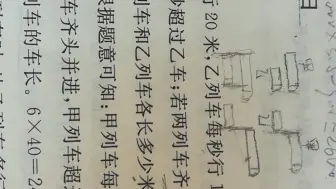 行 20 米,乙列车每秒行 1
秒超过乙车;若两列车齐
列车和乙列车各长多少米
根据题意可知:甲列车每
车齐头并进,甲列车超
列车的车长。6×40=2